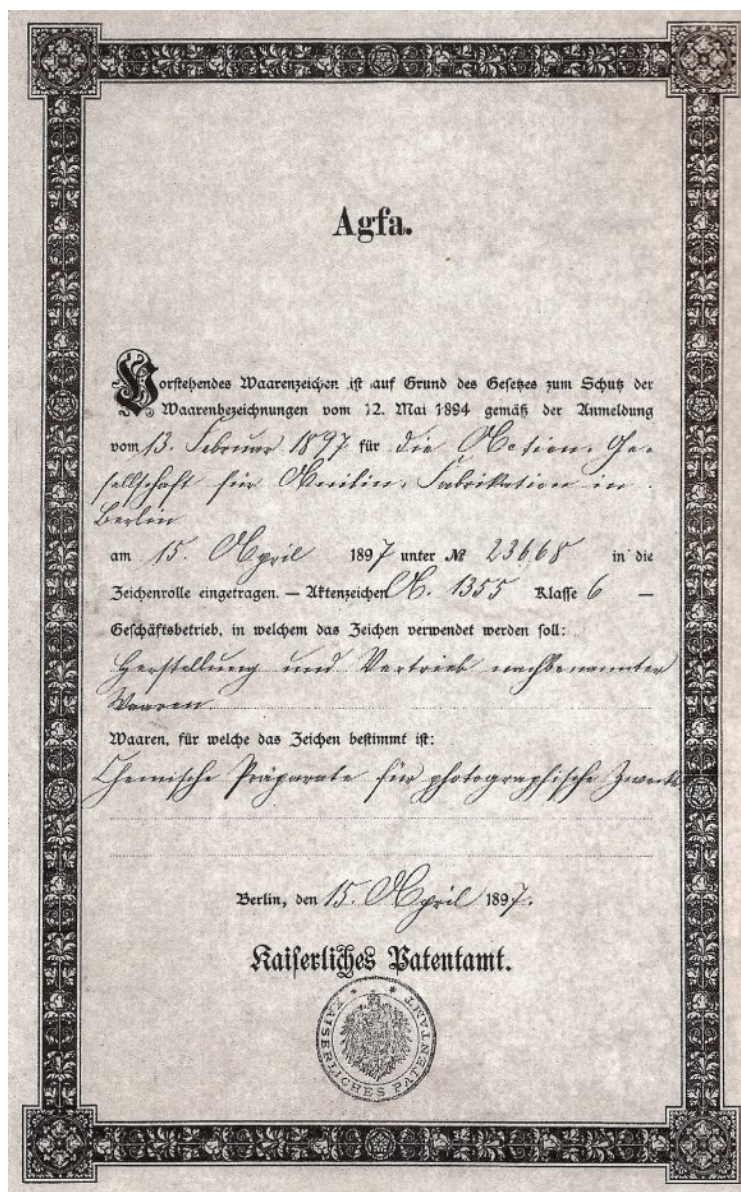 Agfa.
Vorstehendes Waarenzeichen ist auf Grund des Gesetzes zum Schutz der
Waarenbezeichnungen vom 12. Mai 1894 gemäß der Anmeldung
vom 13. Februar 1897 für die Actien-Ge-
sellschaft für Anilin-Fabrikation in
Berlin
am 15. April 1897 unter № 23668 in die
Zeichenrolle eingetragen. — Aktenzeichen A. 1355 Klasse 6 —
Geschäftsbetrieb, in welchem das Zeichen verwendet werden soll:
Herstellung und Vertrieb nachbenannter
Waaren.
Waaren, für welche das Zeichen bestimmt ist:
Chemische Präparate für photographische Zwecke
Berlin, den 15. April 1897.
Kaiserliches Patentamt.
KAISERLICHES PATENTAMT